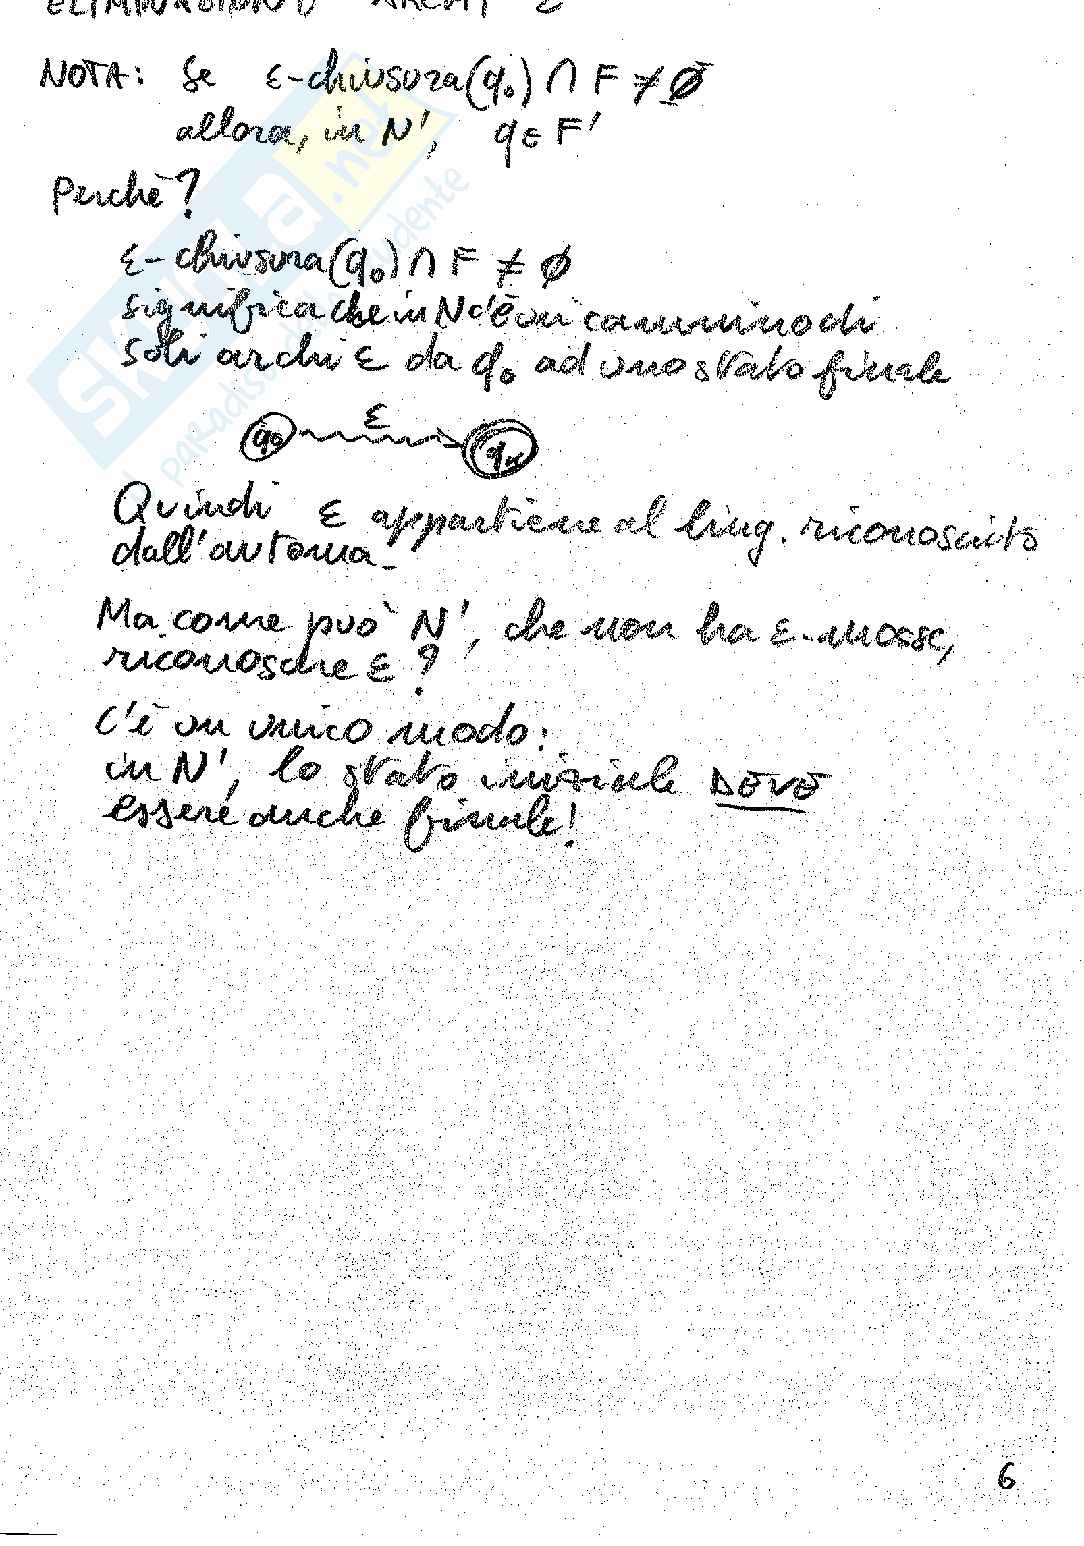 ELIMINAZIONE ARCHI ε
NOTA: Se ε-chiusura(q₀) ∩ F ≠ Ø
allora, in N', q ∈ F'
Perchè?
ε-chiusura(q₀) ∩ F ≠ Ø
significa che in N c'è un cammino di
soli archi ε da q₀ ad uno stato finale
q₀ ε qₓ
Quindi ε appartiene al ling. riconoscito
dall'automa.
Ma come può N', che non ha ε-mosse,
riconoscere ε?
C'è un unico modo:
in N', lo stato iniziale DEVE
essere anche finale!
6
SKUOLA.net
il paradiso dello studente